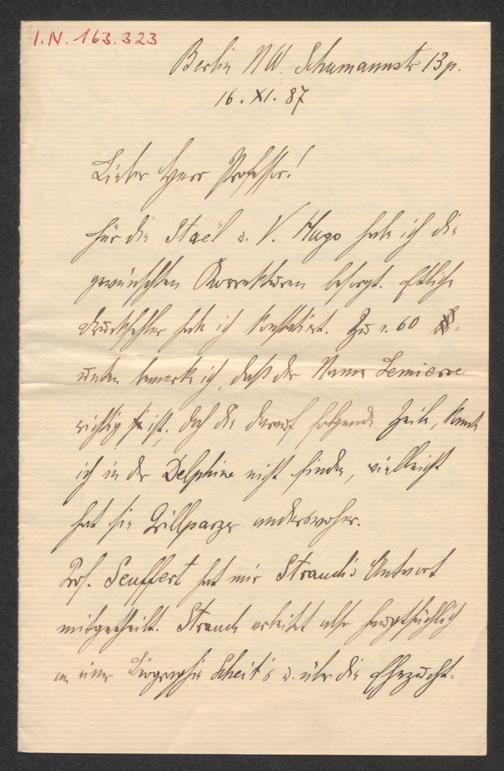 I.N. 163.323
Berlin NW. Schumannstr 13p.
16. XI. 87
Lieber Herr Professor!
Für die Staël u. V. Hugo habe ich die
gewünschten Korrekturen besorgt. Etliche
Druckfehler habe ich konstatirt. Zu S. 60
unten bemerke ich, daß der Name Lemierre
richtig ist. Doch die darauf folgende Zeile, konnte
ich in der Delphine nicht finden, vielleicht
hat sie Grillparzer anderswoher.
Prof. Seuffert hat mir Strauch's Antwort
mitgetheilt. Strauch arbeitet also hauptsächlich
an einer Biographie Scheit's u. über die Ehezucht-